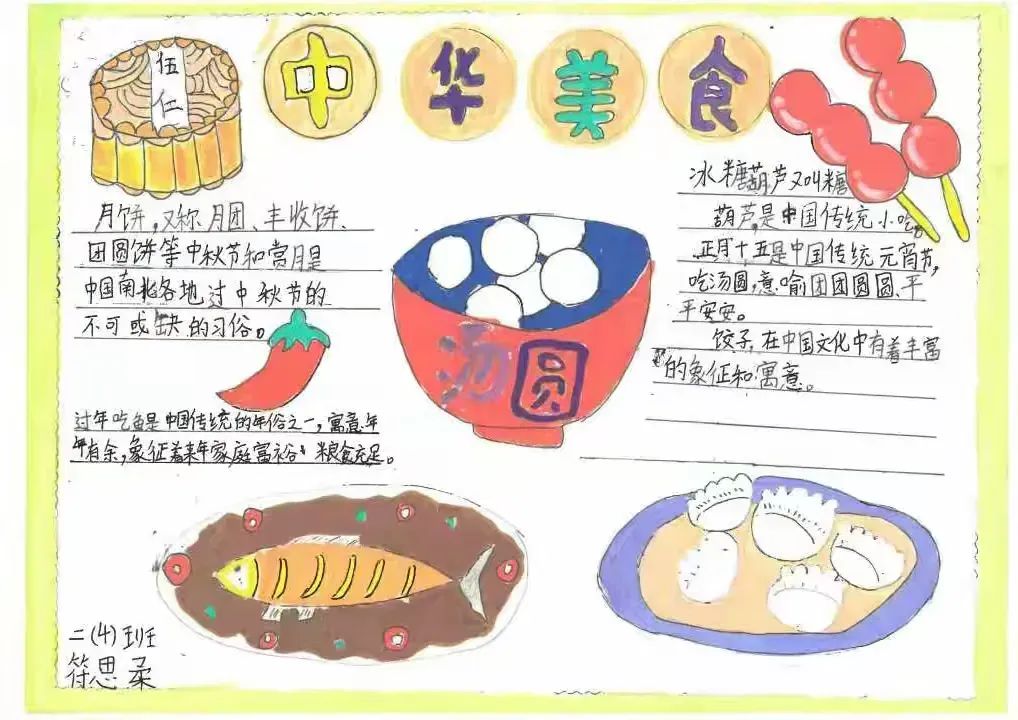 中华美食
伍仁
月饼，又称月团、丰收饼、
团圆饼等中秋节和赏月是
中国南北各地过中秋节的
不可或缺的习俗。
过年吃鱼是中国传统的年俗之一，寓意年
年有余，象征着来年家庭富裕，粮食充足。
汤圆
冰糖葫芦又叫糖
葫芦是中国传统小吃
正月十五是中国传统元宵节，
吃汤圆，意喻团团圆圆、平
平安安。
饺子，在中国文化中有着丰富
的象征和寓意。
二(4)班
符思柔